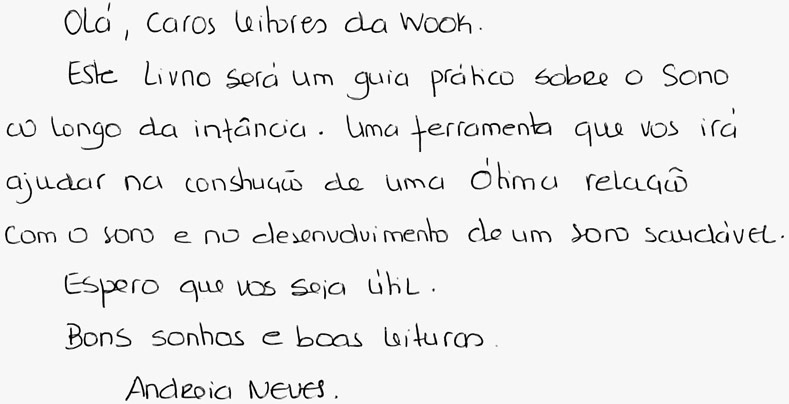 Olá, caros leitores da Wook.
Este Livro será um guia prático sobre o Sono
ao longo da infância. Uma ferramenta que vos irá
ajudar na construção de uma Ótima relação
com o sono e no desenvolvimento de um sono saudável.
Espero que vos seja útil.
Bons sonhos e boas leituras.
Andreia Neves.